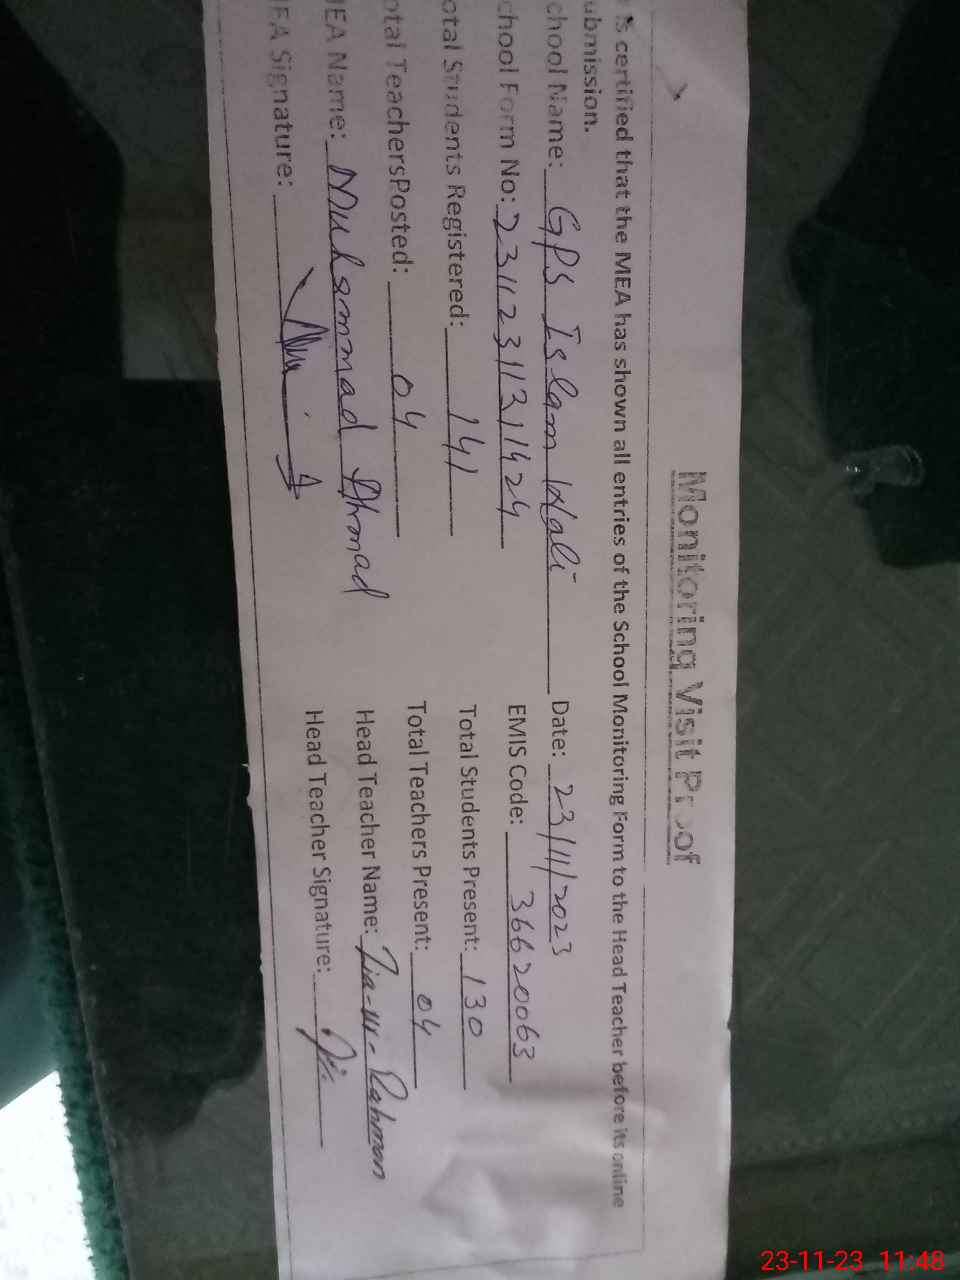 Monitoring Visit Proof
is certified that the MEA has shown all entries of the School Monitoring Form to the Head Teacher before its online
ubmission.
chool Name: GPS Islam Wali Date: 23/11/2023
chool Form No: 23112311311424 EMIS Code: 36620063
otal Students Registered: 141 Total Students Present: 130
otal TeachersPosted: 04 Total Teachers Present: 04
MEA Name: Muhammad Ahmad Head Teacher Name: Zia-ur-Rahman
MEA Signature: Head Teacher Signature:
23-11-23 11:48